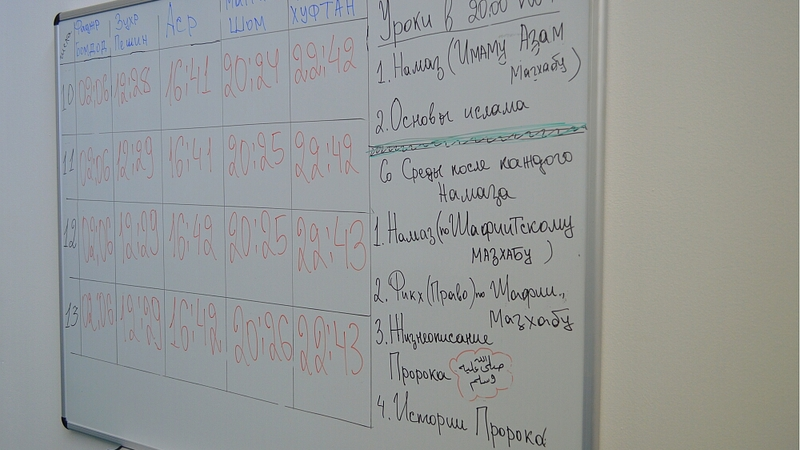 Фаджр Зухр Аср ХУФТАН
числа Бомдод Пешин Шом
10 02:06 12:28 16:41 20:24 22:42
11 02:06 12:29 16:41 20:25 22:42
12 02:06 12:29 16:42 20:25 22:43
13 02:06 12:29 16:42 20:26 22:43
Уроки в 20:00
1. Намаз (Имаму Азам
Мазхабу)
2. Основы ислама
Со Среды после каждого
Намаза
1. Намаз (по Шафиитскому
мазхабу)
2. Фикх (Право) по Шафии..
Мазхабу
3. Жизнеописание
Пророка صلى الله عليه وسلم
4. Истории Пророка